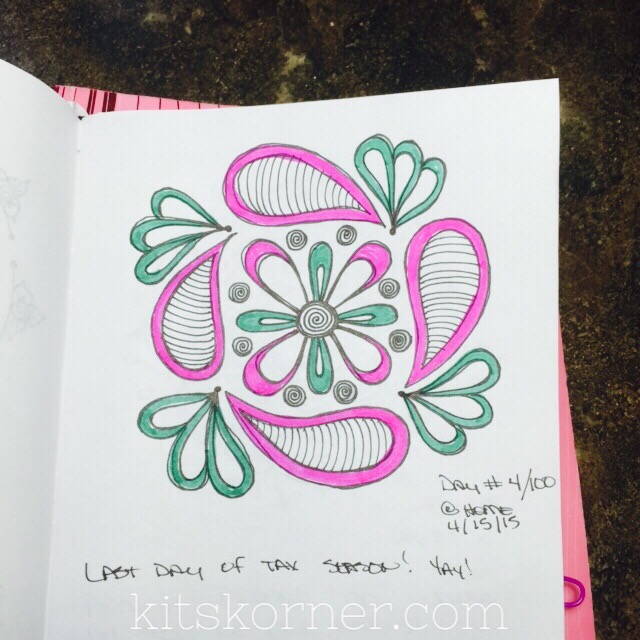 DAY # 4/100
@ HOME
4/15/15
LAST DAY OF TAX SEASON! YAY!
kitskorner.com